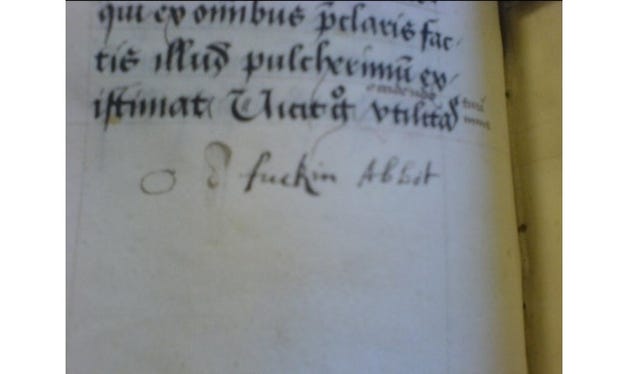 qui ex omnibus p̄claris fac-
tis illud pulcherimū ex-
istimat Uicit g̊ vtilitas
O d fuckin Abbot